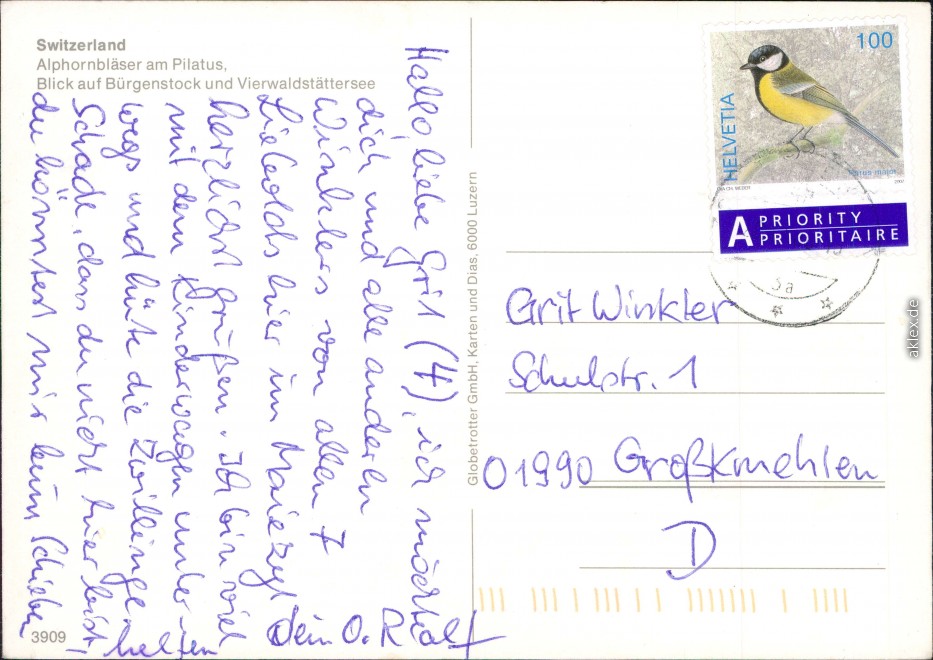 Switzerland
Alphornbläser am Pilatus,
Blick auf Bürgenstock und Vierwaldstättersee
Hallo, liebe Grit (H), ich möchte
dich und alle anderen
Winklers von allen 7
Liebolds hier im
herzlichst grüßen. Ich bin viel
mit dem Kinderwagen unter-
wegs und hüte die Zwillinge.
Schade, dass du nicht hier bist,
du könntest mir beim Schieben
helfen
Dein O. Ralf
3909
Globetrotter GmbH, Karten und Dias, 6000 Luzern
HELVETIA
100
Parus major
A PRIORITY
PRIORITAIRE
Grit Winkler
Schulstr. 1
01990 Großkmehlen
D
aklex.de